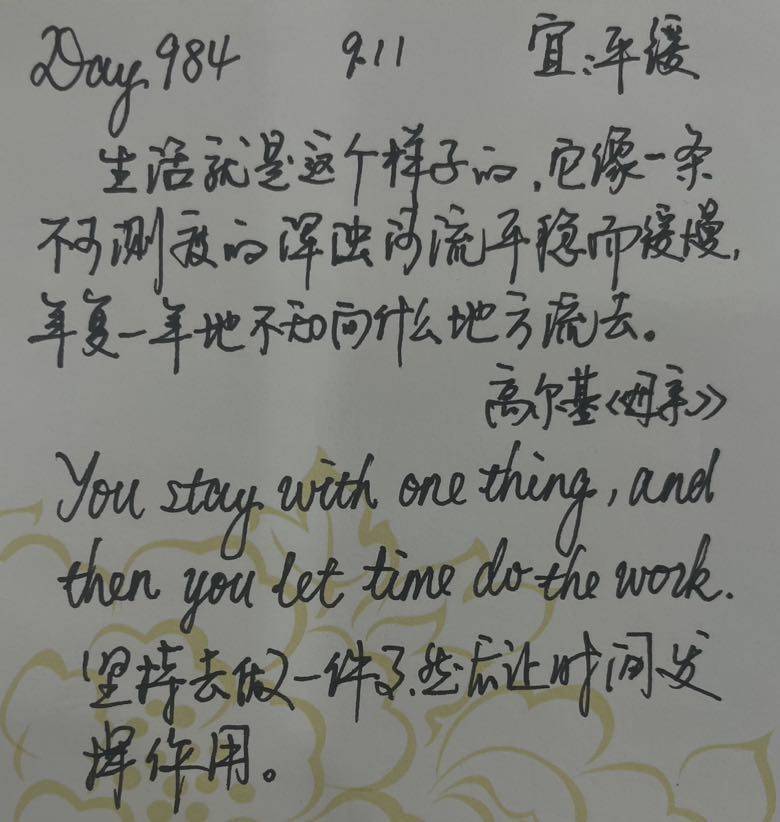 Day 984 9.11 宜:平缓
生活就是这个样子的,它像一条
不可测度的浑浊河流平稳而缓慢,
年复一年地不知向什么地方流去。
高尔基《母亲》
You stay with one thing, and
then you let time do the work.
坚持去做一件事,然后让时间发
挥作用。